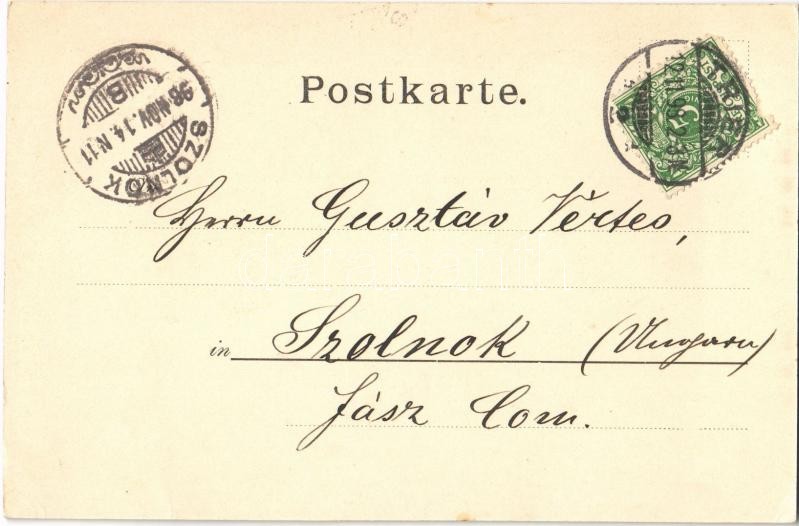 Postkarte.
SZOLNOK
98 NOV. 14. N 11
B
TRIER
5
Herrn Gusztáv Vértes,
in Szolnok (Ungarn)
Jász Com.